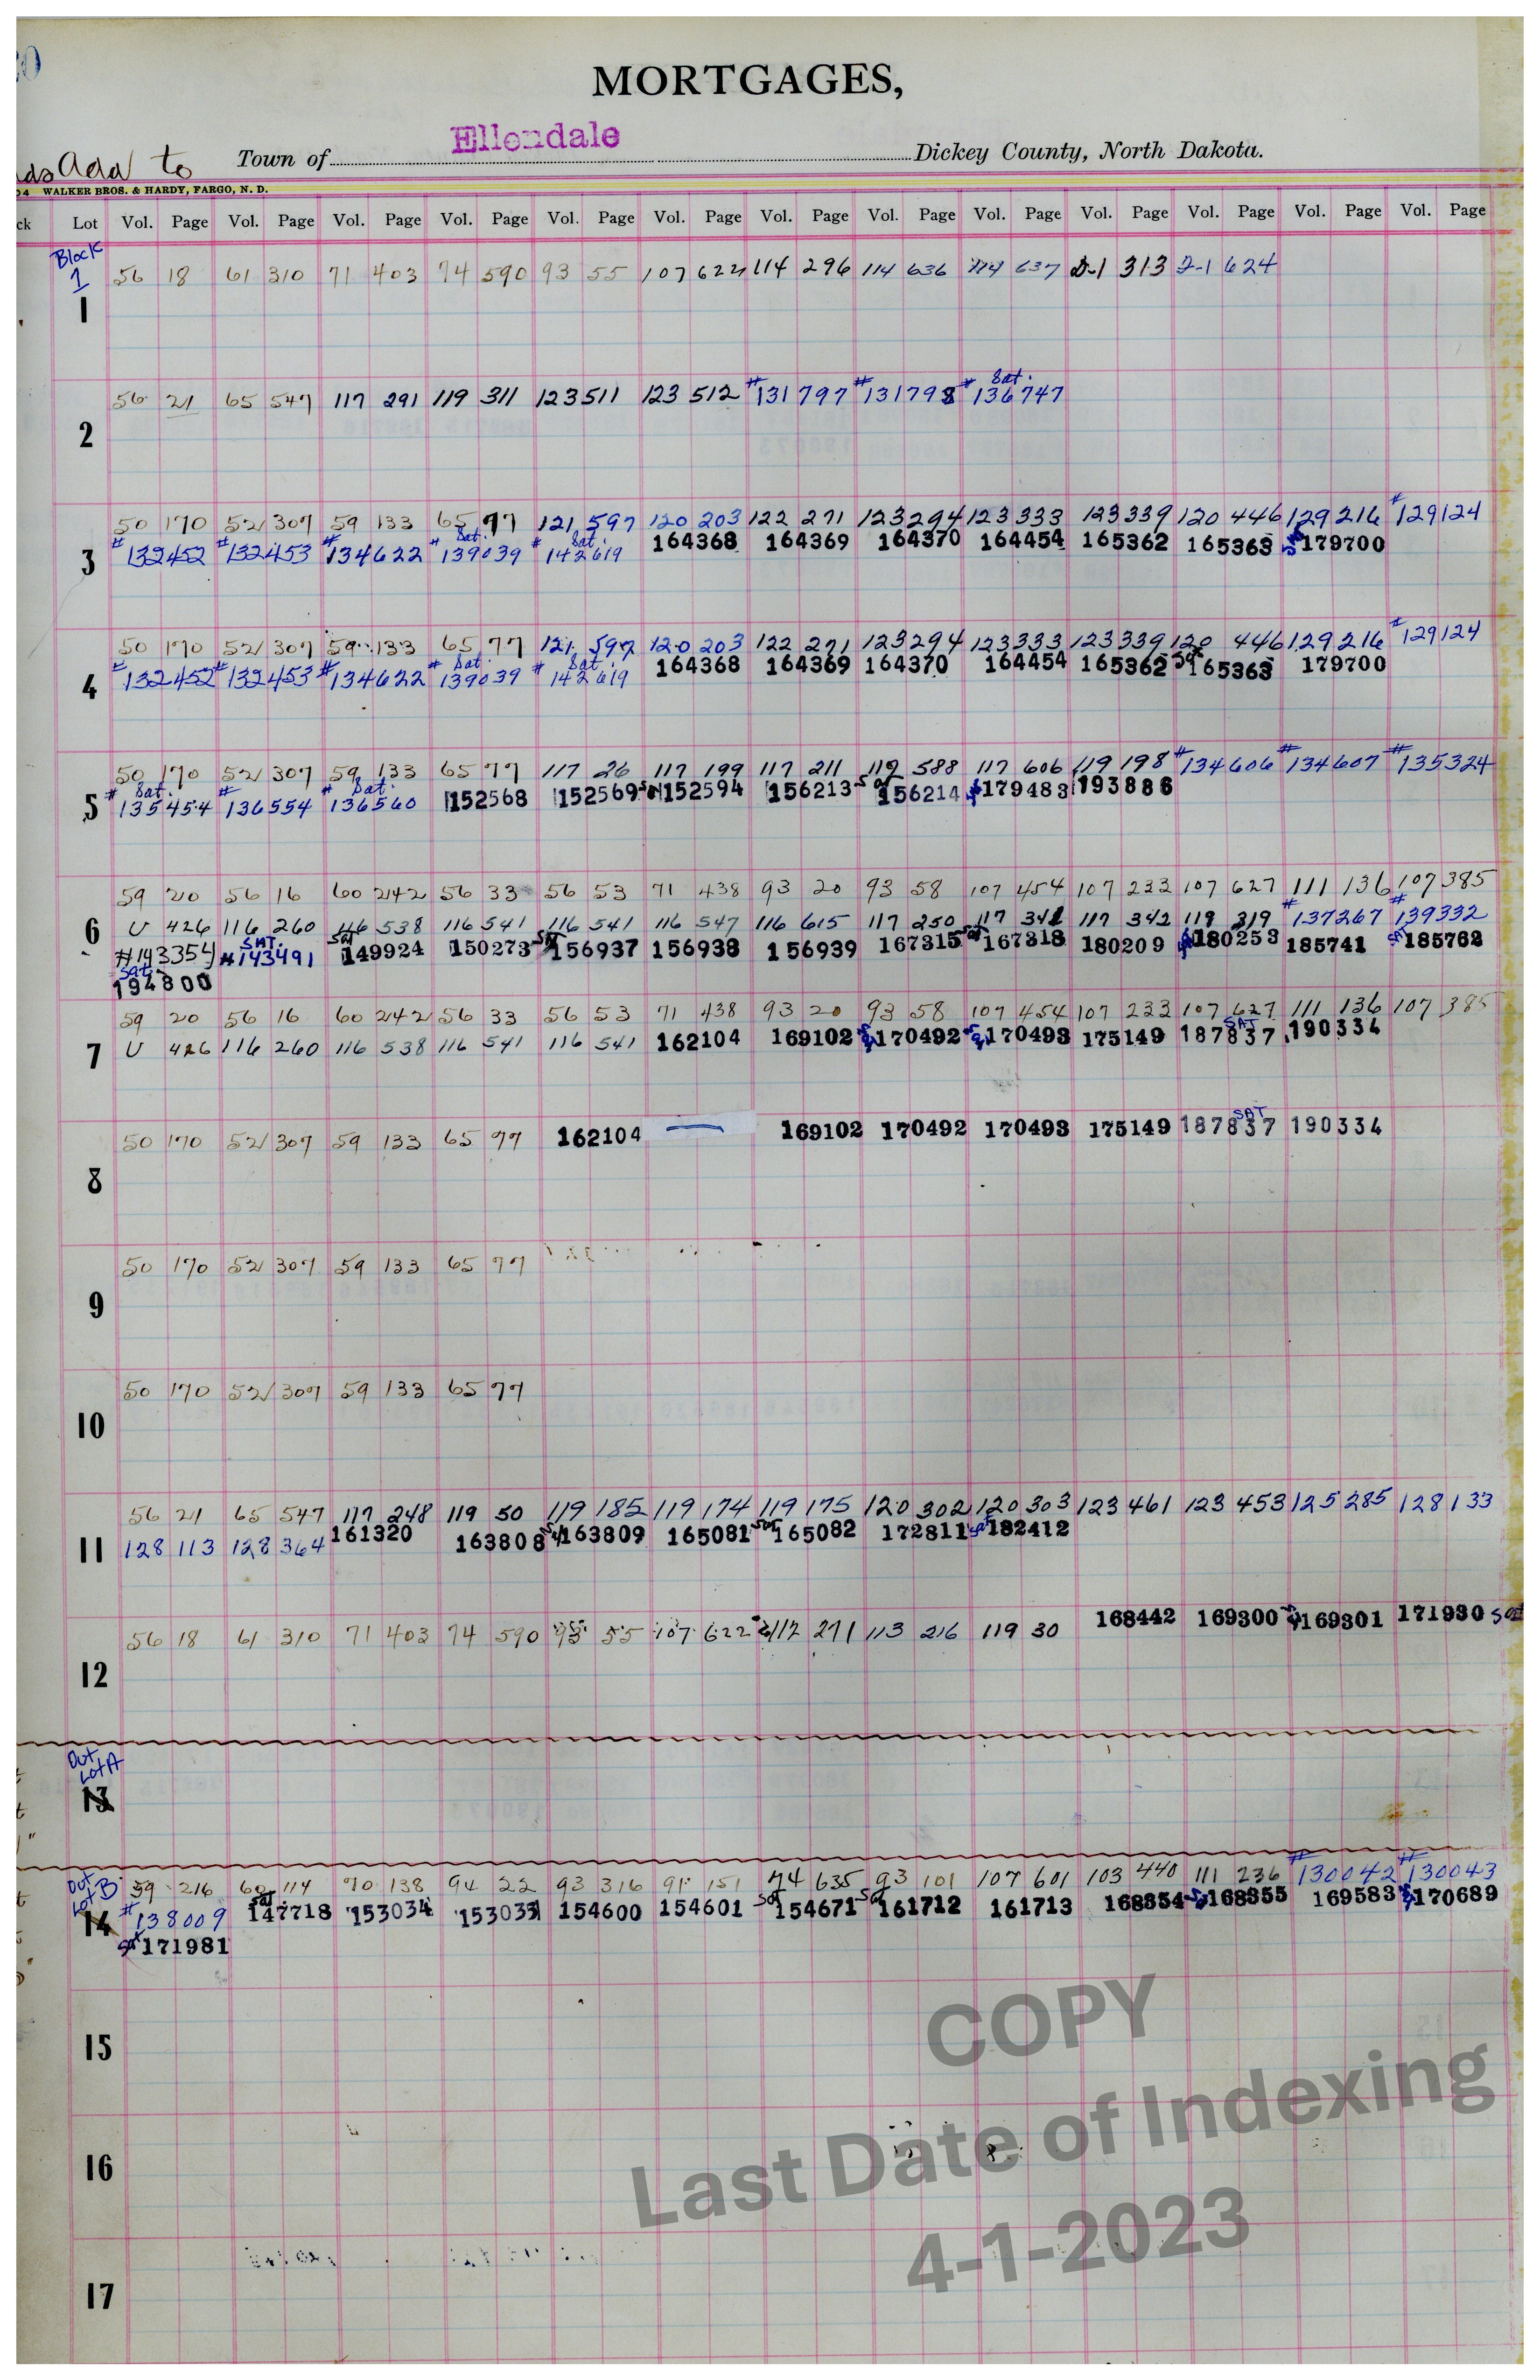 MORTGAGES,
Add to Town of Ellendale Dickey County, North Dakota.
WALKER BROS. & HARDY, FARGO, N. D.
Lot Vol. Page Vol. Page Vol. Page Vol. Page Vol. Page Vol. Page Vol. Page Vol. Page Vol. Page Vol. Page Vol. Page Vol. Page Vol. Page
Block
1
56 18 61 310 71 403 74 590 93 55 107 622 114 296 114 636 114 637 D-1 313 D-1 624
1
Sat.
56 21 65 547 117 291 119 311 123 511 123 512 #131797 #131798 #136747
2
50 170 52 307 59 133 65 77 121 597 120 203 122 271 123 294 123 333 123 339 120 446 129 216 #129124
Sat. Sat.
#132452 #132453 #134622 #139039 #142619 164368 164369 164370 164454 165362 165363 179700
3
50 170 52 307 59 133 65 77 121 597 120 203 122 271 123 294 123 333 123 339 120 446 129 216 #129124
Sat. Sat.
#132452 #132453 #134622 #139039 #142619 164368 164369 164370 164454 165362 Sat 165363 179700
4
50 170 52 307 59 133 65 77 117 26 117 199 117 211 119 588 117 606 119 198 #134606 #134607 #135324
Sat. Sat.
#135454 #136554 #136560 152568 152569 Sat 152594 156213 Sat 156214 179483 193886
5
59 20 56 16 60 242 56 33 56 53 71 438 93 20 93 58 107 454 107 233 107 627 111 136 107 385
U 426 116 260 116 538 116 541 116 541 116 547 116 615 117 250 117 342 117 342 119 319 #137267 #139332
6
#143354 SAT. #143491 Sat 149924 150273 Sat 156937 156938 156939 167315 Sat 167318 180209 180253 185741 SAT 185762
Sat.
194800
59 20 56 16 60 242 56 33 56 53 71 438 93 20 93 58 107 454 107 233 107 627 111 136 107 385
U 426 116 260 116 538 116 541 116 541 162104 169102 170492 170493 175149 SAT 187837 190334
7
50 170 52 307 59 133 65 77 162104 169102 170492 170493 175149 SAT 187837 190334
8
50 170 52 307 59 133 65 77
9
50 170 52 307 59 133 65 77
10
56 21 65 547 117 248 119 50 119 185 119 174 119 175 120 302 120 303 123 461 123 453 125 285 128 133
128 113 128 364 161320 163808 Sat 163809 165081 Sat 165082 172811 Sat 182412
11
56 18 61 310 71 403 74 590 93 55 107 622 112 271 113 216 119 30 168442 169300 169301 171930 Sat
12
Out
Lot A
13
Out
Lot B
59 216 60 114 70 138 94 22 93 316 91 151 74 635 93 101 107 601 103 440 111 236 #130042 #130043
#138009 Sat 147718 153034 153035 154600 154601 Sat 154671 Sat 161712 161713 168354 168355 169583 170689
14
Sat 171981
15
16
17
COPY
Last Date of Indexing
4-1-2023